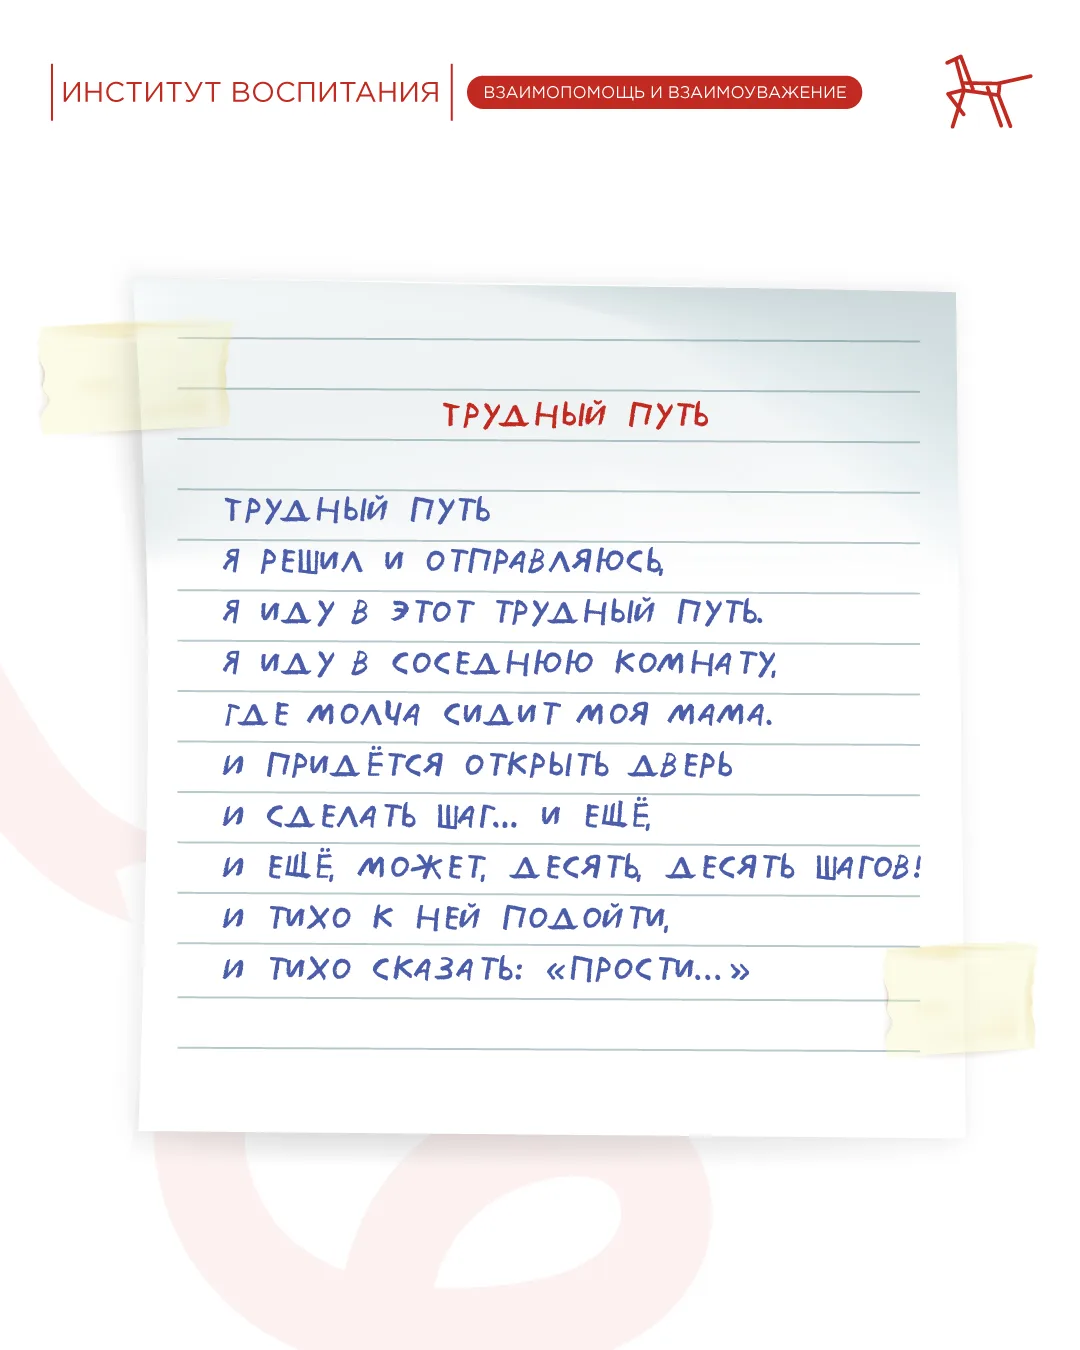 ИНСТИТУТ ВОСПИТАНИЯ
ВЗАИМОПОМОЩЬ И ВЗАИМОУВАЖЕНИЕ
ТРУДНЫЙ ПУТЬ
ТРУДНЫЙ ПУТЬ
Я РЕШИЛ И ОТПРАВЛЯЮСЬ,
Я ИДУ В ЭТОТ ТРУДНЫЙ ПУТЬ.
Я ИДУ В СОСЕДНЮЮ КОМНАТУ,
ГДЕ МОЛЧА СИДИТ МОЯ МАМА.
И ПРИДЁТСЯ ОТКРЫТЬ ДВЕРЬ
И СДЕЛАТЬ ШАГ... И ЕЩЁ,
И ЕЩЁ, МОЖЕТ, ДЕСЯТЬ, ДЕСЯТЬ ШАГОВ!
И ТИХО К НЕЙ ПОДОЙТИ,
И ТИХО СКАЗАТЬ: «ПРОСТИ...»